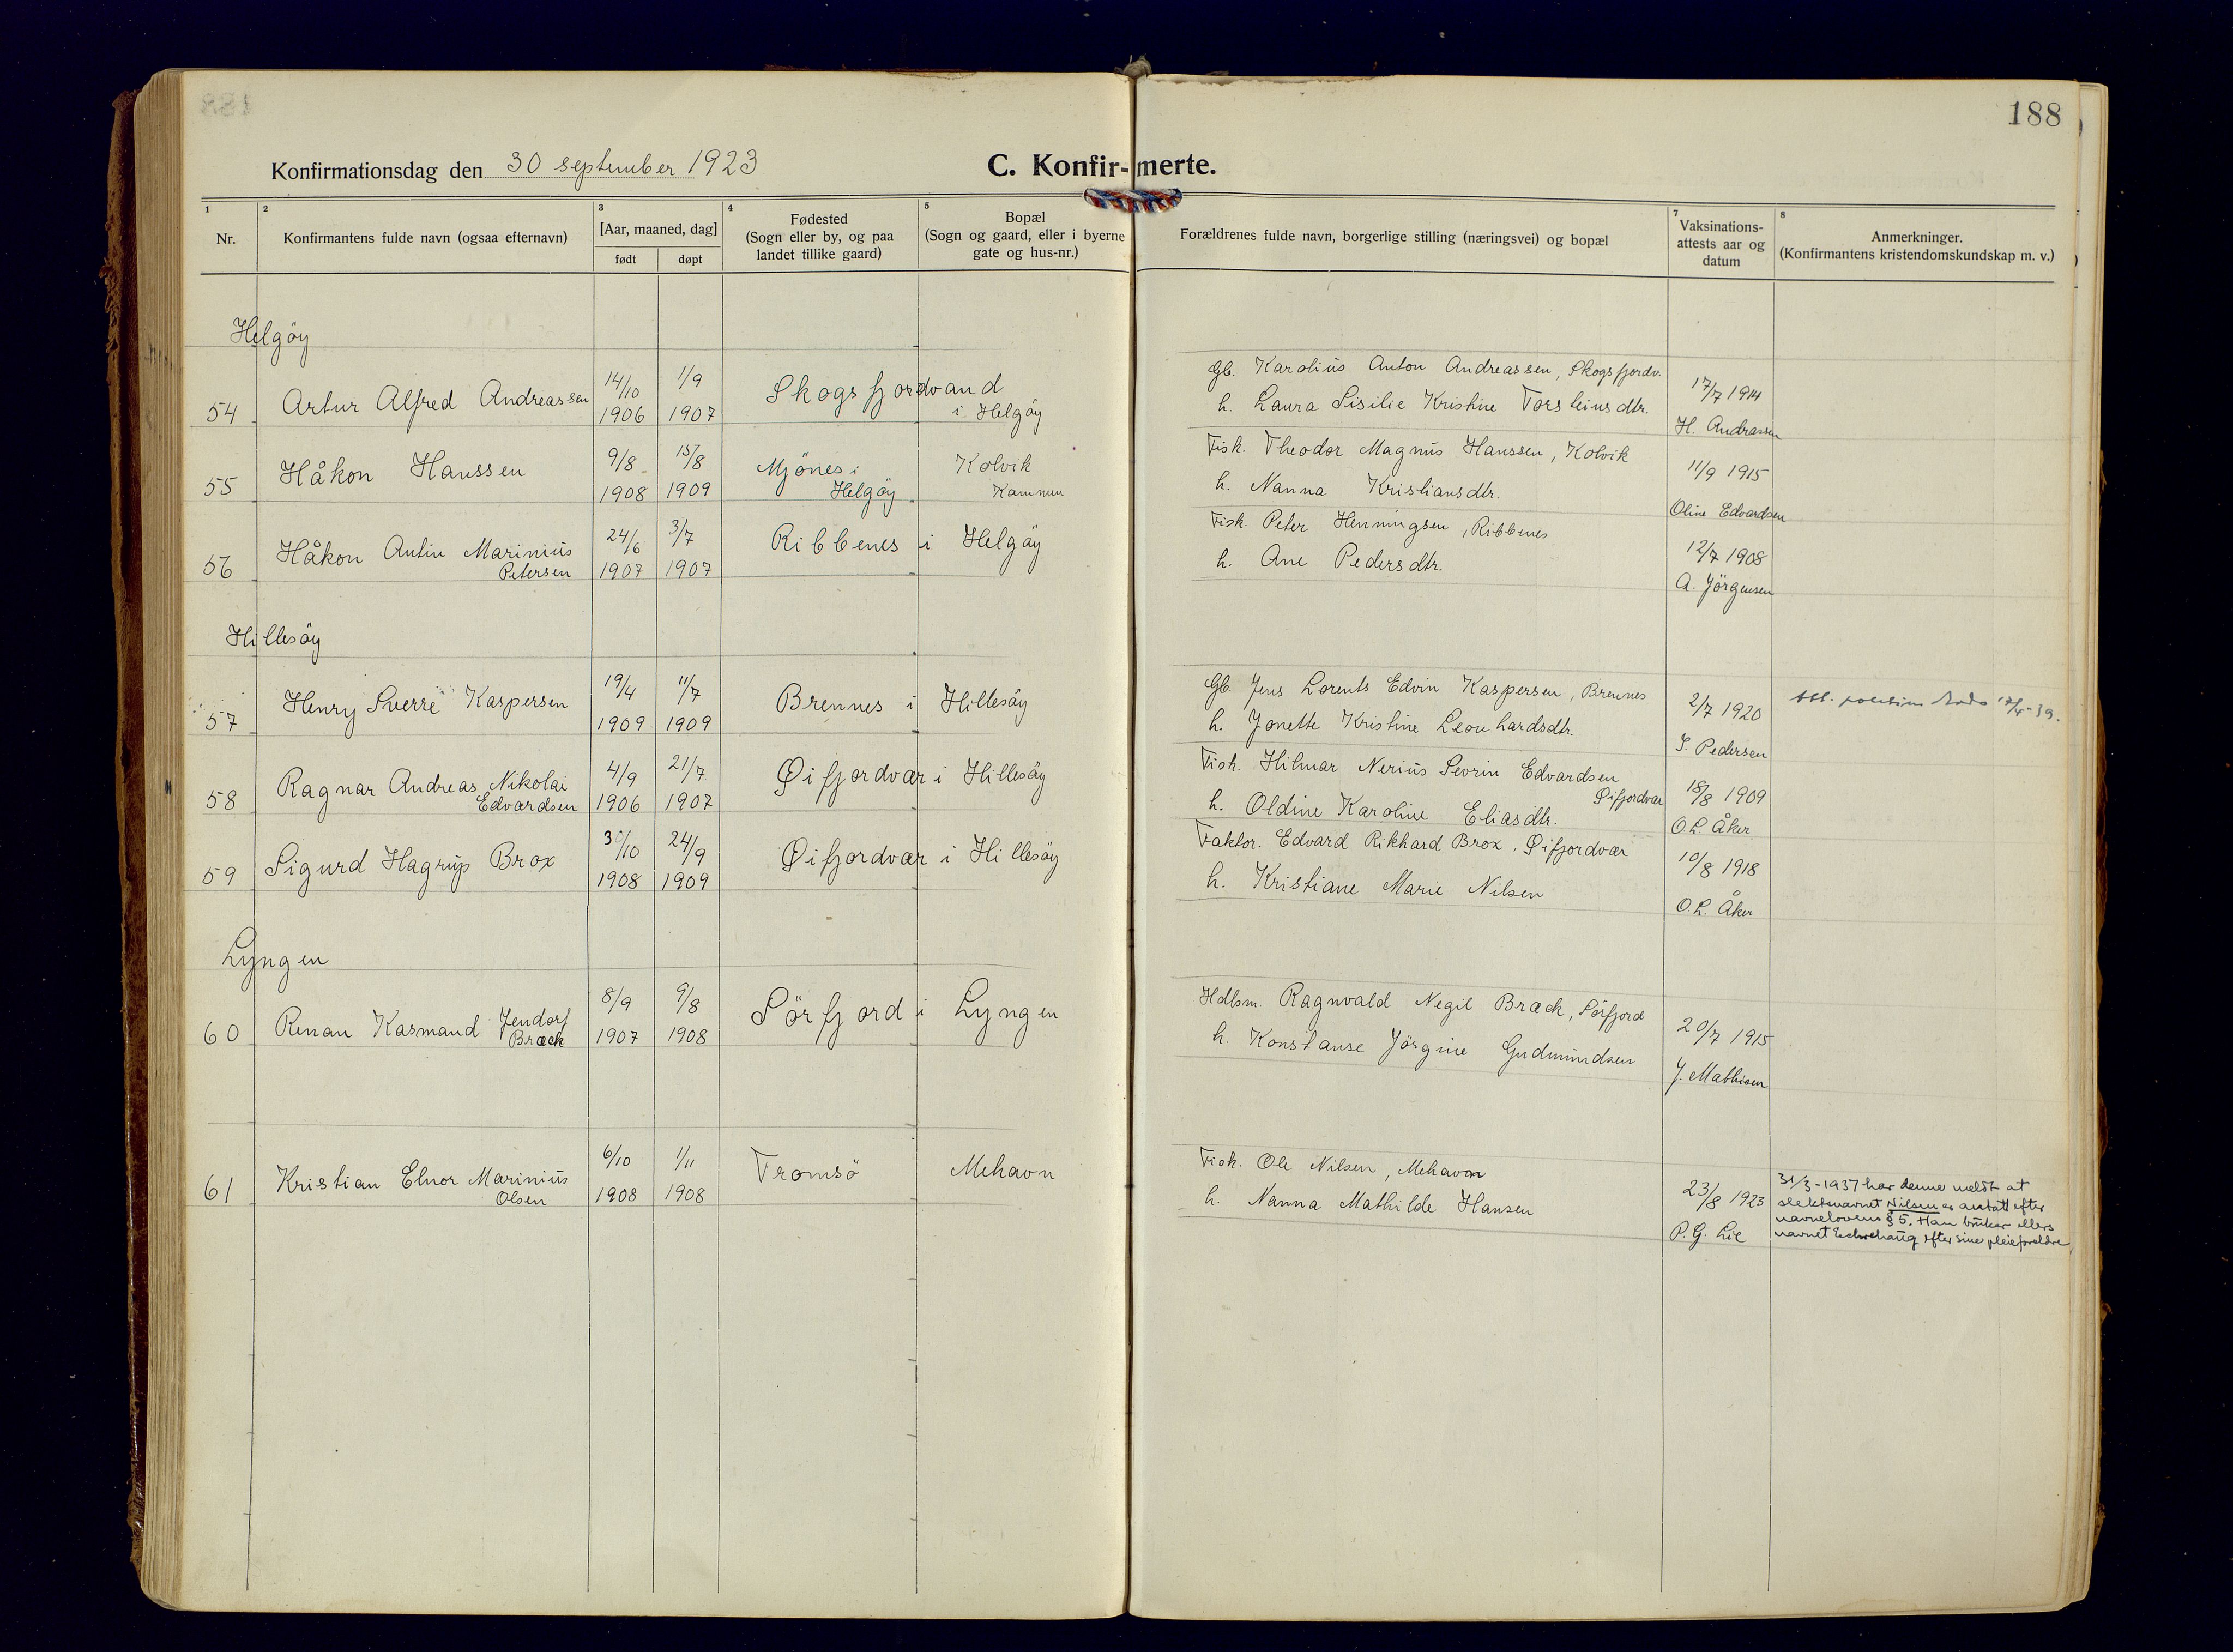 188
Konfirmationsdag den 30 september 1923
C. Konfir-merte.
1 Nr.
2 Konfirmantens fulde navn (ogsaa efternavn)
3 [Aar, maaned, dag]
født døpt
4 Fødested
(Sogn eller by, og paa
landet tillike gaard)
5 Bopæl
(Sogn og gaard, eller i byerne
gate og hus-nr.)
Forældrenes fulde navn, borgerlige stilling (næringsvei) og bopæl
7 Vaksinations-
attests aar og
datum
8 Anmerkninger.
(Konfirmantens kristendomskundskap m. v.)
Helgöy
54 Artur Alfred Andreassen 14/10 1906 1/9 1907 Skogsfjordvand i Helgöy
Gb. Karolius Anton Andreassen, Skogsfjordv.
h. Laura Sisilie Kristine Torsteinsdtr.
17/7 1914
H. Andrassen
55 Håkon Hanssen 9/8 1908 15/8 1909 Mjönes i Helgöy Kolvik Kammen
Fisk. Theodor Magnus Hanssen, Kolvik
h. Nanna Kristiansdtr.
11/9 1915
Oline Edvardsen
56 Håkon Antin Marinius Petersen 24/6 1907 3/7 1907 Ribbenes i Helgöy
Fisk. Peter Henningsen, Ribbenes
h. Ane Pedersdtr.
12/7 1908
A. Jörgensen
Hillesöy
57 Henry Sverre Kaspersen 19/4 1909 11/7 1909 Brennes i Hillesöy
Gb. Jens Lorents Edvin Kaspersen, Brennes
h. Jonette Kristine Leonhardsdtr.
2/7 1920
S. Pedersen
58 Ragnar Andreas Nikolai Edvardsen 4/9 1906 21/7 1907 Øifjordvær i Hillesöy
Fisk. Hilmar Nerius Sevrin Edvardsen
Øifjordvær
h. Oldine Karoline Eliasdtr.
18/8 1909
O.L. Åker
59 Sigurd Hagrup Brox 30/10 1908 24/9 1909 Øifjordvær i Hillesöy
Faktor. Edvard Rikhard Brox, Øifjordvær
h. Kristiane Marie Nilsen
10/8 1918
O.L. Åker
Lyngen
60 Renan Kasmand Jendorf Bræck 8/9 1907 9/8 1908 Sörfjord i Lyngen
Hdlsm. Ragnvald Negil Bræck, Sörfjord
h. Konstanse Jörgine Gudmundsen
20/7 1915
J. Mathisen
61 Kristian Elnor Marinius Olsen 6/10 1908 1/11 1908 Tromsö Mehavn
Fisk. Ole Nilsen, Mehavn
h. Nanna Mathilde Hansen
23/8 1923
P.G. Lie
31/3-1937 har denne meldt at
slektsnavnet Nilsen er antatt efter
navnelovens § 5. Han bruker ellers
navnet efter sine pleieforeldre